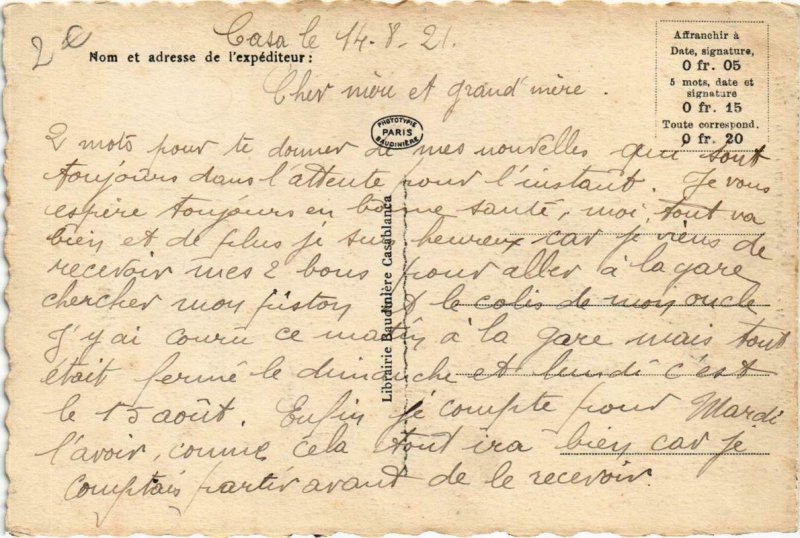 2
Casa le 14-8-21.
Nom et adresse de l'expéditeur:
Affranchir à
Date, signature,
0 fr. 05
5 mots, date et
signature
0 fr. 15
Toute correspond.
0 fr. 20
Cher mère et grand'mère.
PHOTOTYPIE
PARIS
BAUDINIÈRE
2 mots pour te donner de mes nouvelles qui sont
toujours dans l'attente pour l'instant. Je vous
espère toujours en bonne santé, moi, tout va
bien et de plus je suis heureux car je viens de
recevoir mes 2 bons pour aller à la gare
chercher mon fiston & le colis de mon oncle
J'y ai couru ce matin à la gare mais tout
était fermé le dimanche et lundi c'est
le 15 août. Enfin je compte pour Mardi
l'avoir, comme cela tout ira bien car je
comptais partir avant de le recevoir.
Librairie Baudinière Casablanca